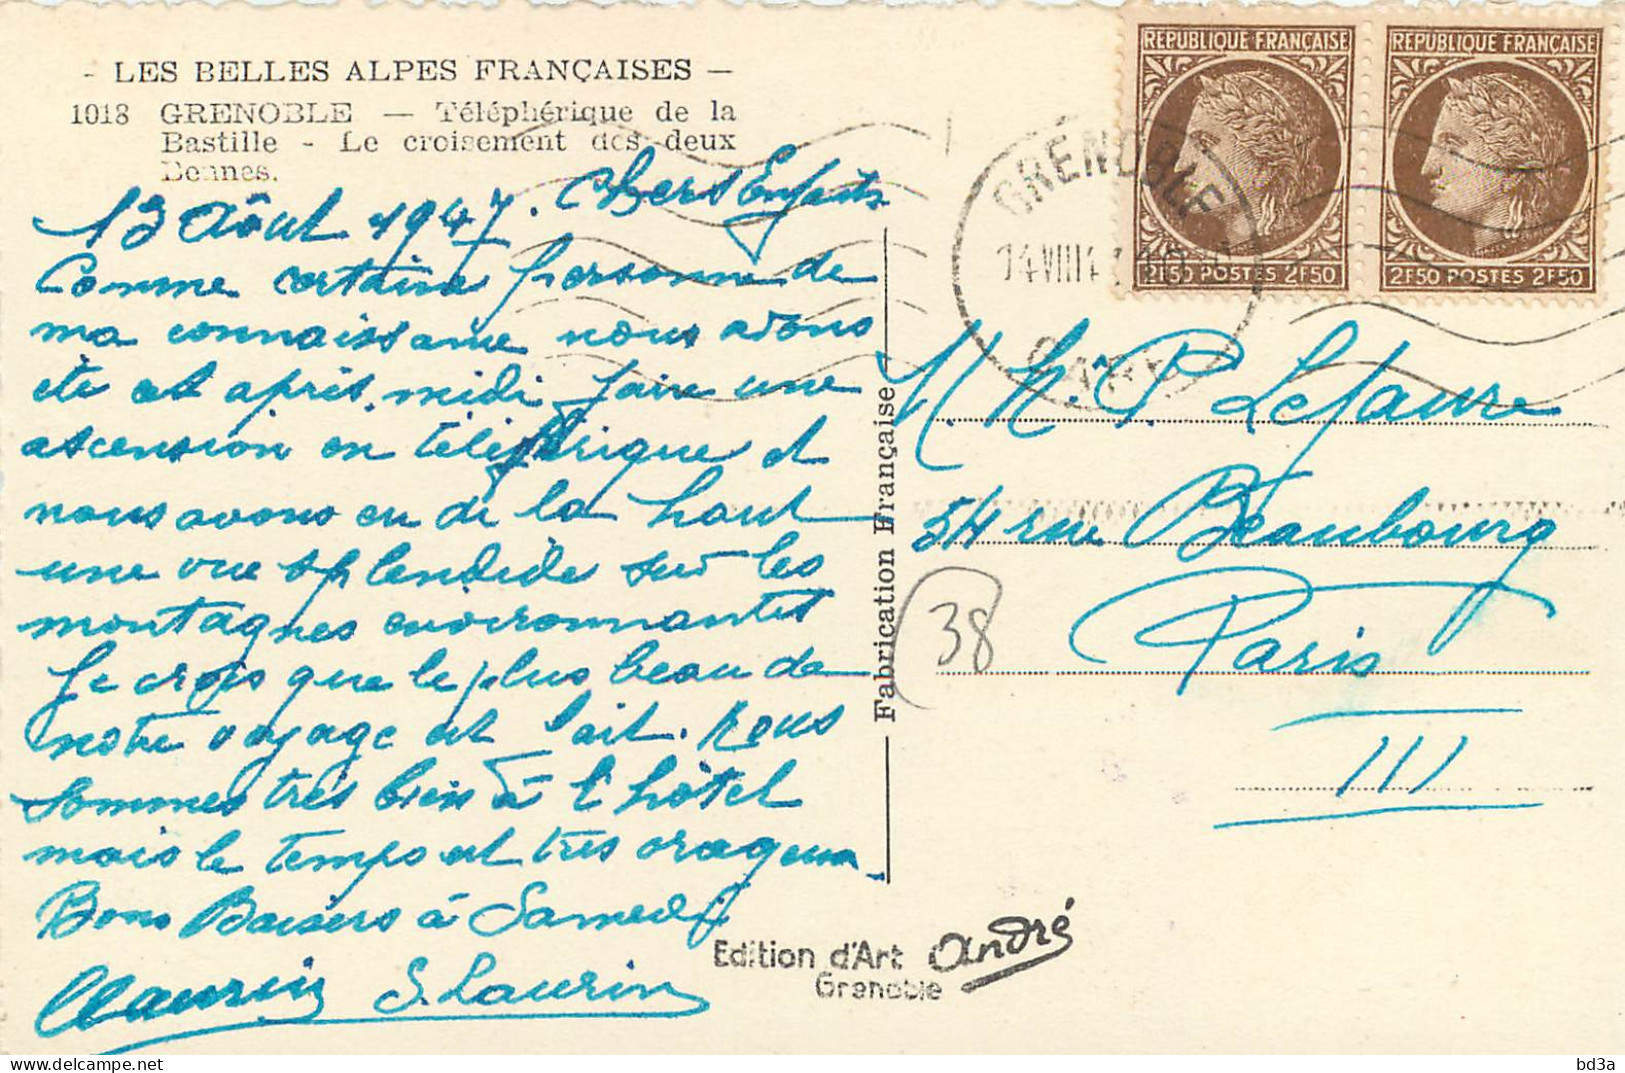 - LES BELLES ALPES FRANÇAISES -
1018 GRENOBLE — Téléphérique de la
Bastille - Le croisement des deux
Bennes.
13 Aôut 1947. Chers Enfants
Comme certaine personne de
ma connaissance nous avons
été cet après-midi faire une
ascension en téléphérique et
nous avons eu de la haut
une vue splendide sur les
montagnes environnantes
Je crois que le plus beau de
notre voyage est fait. Nous
sommes très bien à l'hôtel
mais le temps est très orageux
Bons Baisers à Samedi
S. Laurin
Fabrication Française
REPUBLIQUE FRANÇAISE
2F50 POSTES 2F50
REPUBLIQUE FRANÇAISE
2F50 POSTES 2F50
GRENOBLE
GARE
P. Lefaure
54 rue Beaubourg
Paris
III
38
Edition d'Art André
Grenoble
bd3a